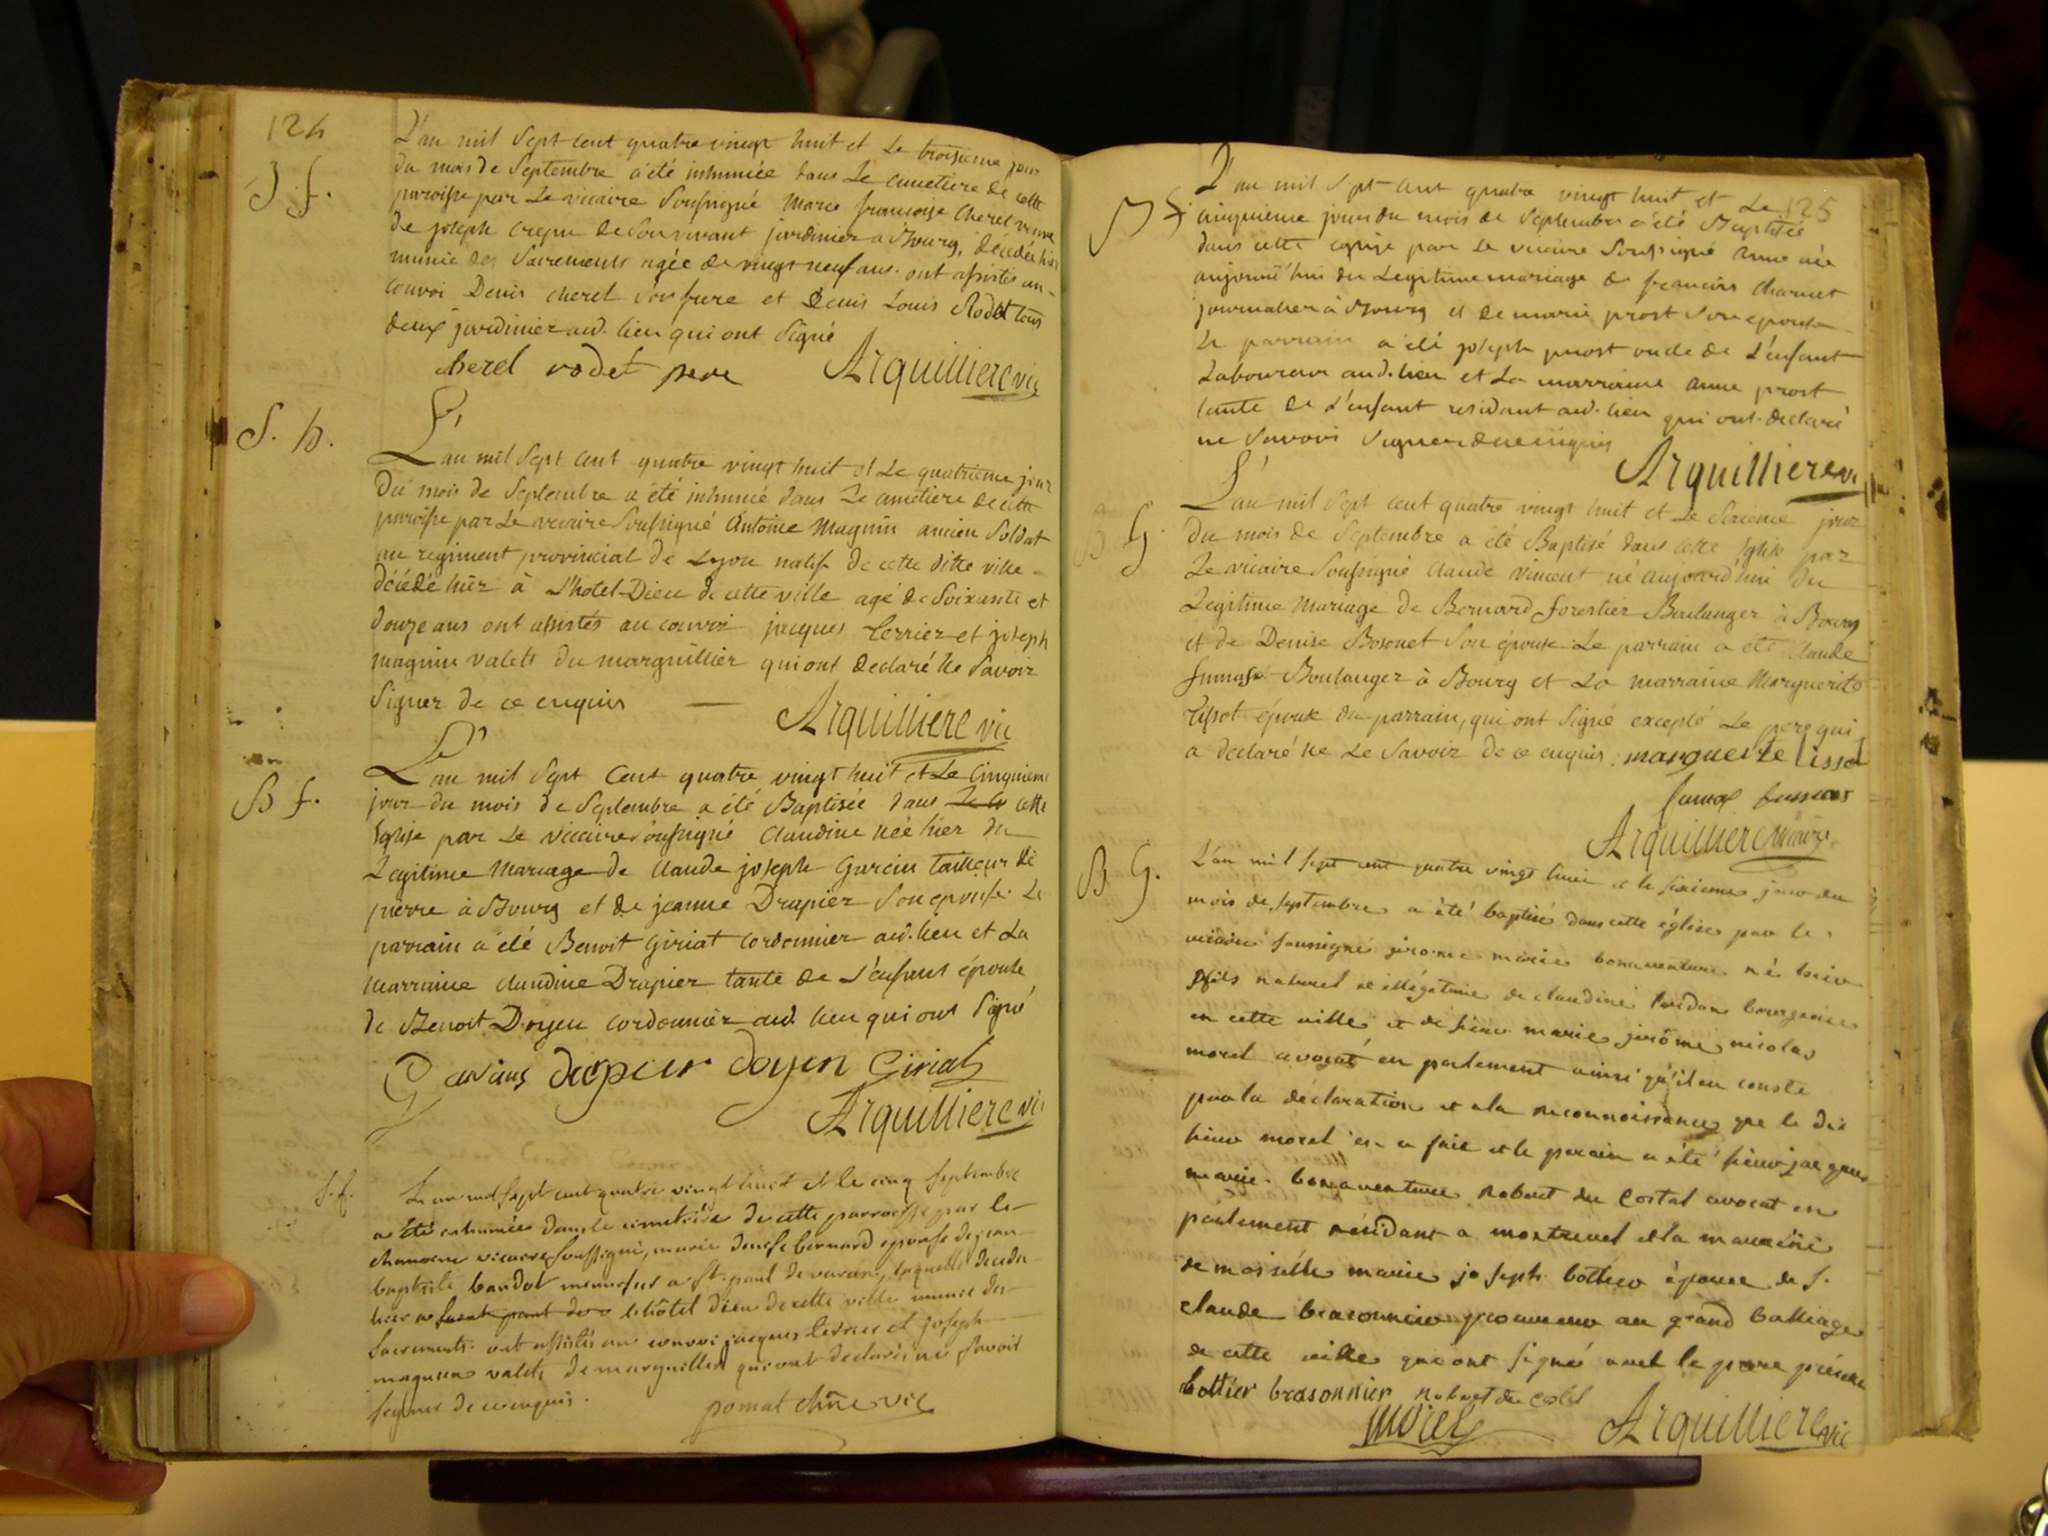 124
S. f.
L'an mil Sept cent quatre vingt huit et Le troisieme jour
du mois de Septembre a été inhumée dans Le cimetiere de cette
paroisse par Le vicaire Soussigné Marie françoise Cherel veuve
de joseph crepu de Son vivant jardinier a Bourg, décédée hier
munie des Sacrements agée de vingt neuf ans. ont assistés au
convoi Denis cherel Son frere et Denis Louis Rodet tous
deux jardinier aud. lieu qui ont Signé
cherel rodet pere Arquilliere vic
S. h.
L'an mil Sept cent quatre vingt huit et Le quatrieme jour
Du mois de Septembre a été inhumé dans Le cimetiere de cette
paroisse par Le vicaire Soussigné Antoine Magnin ancien Soldat
au regiment provincial de Lyon natif de cette ditte ville
décédé hier à L'hotel-Dieu de cette ville agé de Soixante et
douze ans ont assistés au convoi jacques Terrier et joseph
magnin valets du marguillier qui ont declaré ne Savoir
Signer de ce enquis
Arquilliere vic
B f.
L'an mil Sept Cent quatre vingt huit et Le Cinquieme
jour du mois de Septembre a été Baptisée dans cette
Eglise par Le vicaire soussigné Claudine née hier du
Legitime Mariage de Claude joseph Garcin tailleur de
pierre à Bourg et de jeanne Drapier Son epouse. Le
parrain a été Benoit Giriat cordonnier aud. lieu et La
marraine claudine Drapier tante de L'enfant épouse
de Benoit Doyen cordonnier aud. lieu qui ont Signé
drapier doyen Giriat
Arquilliere vic
S. f.
L'an mil Sept cent quatre vingt huit et le cinq Septembre
a été inhumée dans le cimetière de cette parroisse par le
chanoine vicaire soussigné, marie denise bernard epouse de jean
baptiste baudot a St. paul de varax, laquelle décéda
hier a L'hôtel dieu de cette ville munie des
Sacrements. ont assistés au convoi jacques terrier et joseph
magnin valets de marguillier qui ont declarés ne Savoir
Signer de ce enquis.
pomat chne vic
125
B f.
L'an mil Sept cent quatre vingt huit et Le
cinquieme jour du mois de Septembre a été Baptisée
dans cette eglise par Le vicaire Soussigné Anne née
aujourd'hui du Legitime mariage de françois Charnet
journalier à Bourg et de marie prost Son epouse
Le parrain a été joseph prost oncle de L'enfant
Laboureur aud. lieu et La marraine anne prost
tante de L'enfant residant aud. lieu qui ont declaré
ne Savoir Signer de ce enquis
Arquilliere vic
B G.
L'an mil Sept cent quatre vingt huit et Le Sixieme jour
Du mois de Septembre a été Baptisé dans cette Eglise par
Le vicaire Soussigné Claude vincent né aujourd'hui du
Legitime Mariage de Bernard forestier Boulanger à Bourg
et de Denise Bosonet Son épouse. Le parrain a été Claude
Boulanger à Bourg et La marraine Marguerite
Tissot épouse du parrain, qui ont Signé excepté Le pere qui
a declaré ne Le Savoir de ce enquis. marguerite tissot
Arquilliere vicaire
B. G.
L'an mil sept cent quatre vingt huit et le sixieme jour du
mois de septembre a été baptisé dans cette église par le
vicaire soussigné jérome marie bonaventure né hier
fils naturel et illégitime de claudine bourgeoise
en cette ville et de sieur marie jérôme nicolas
morel avocat en parlement ainsi qu'il en conste
par la déclaration et la reconnoissance que le dit
sieur morel en a fait et le parain a été sieur jacques
marie bonaventure Robert du Costal avocat en
parlement résidant a montrevel et la maraine
demoiselle marie joseph bottier épouse de S.
claude brasonnier procureur au grand Bailliage
de cette ville qui ont signé avec le pere présent
bottier brasonnier Robert du Costal
morel Arquilliere vic